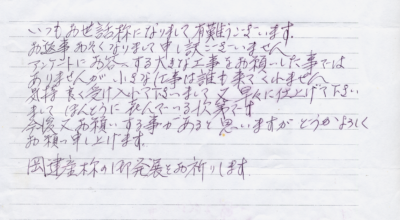 いつもお世話様になりまして有難うございます。
お返事おそくなりまして申し訳ございません
アンケートにお答えする大きな工事をお願いした事では
ありませんが 小さな仕事は誰も来てくれません
気持良く受け入れて下さいまして 又 早々に仕上げて下さい
まして ほんとうに 喜んでいる次第です
今後又お願いする事があると思いますが どうかよろしく
お願い申し上げます。
岡建産様の御発展をお祈りします。